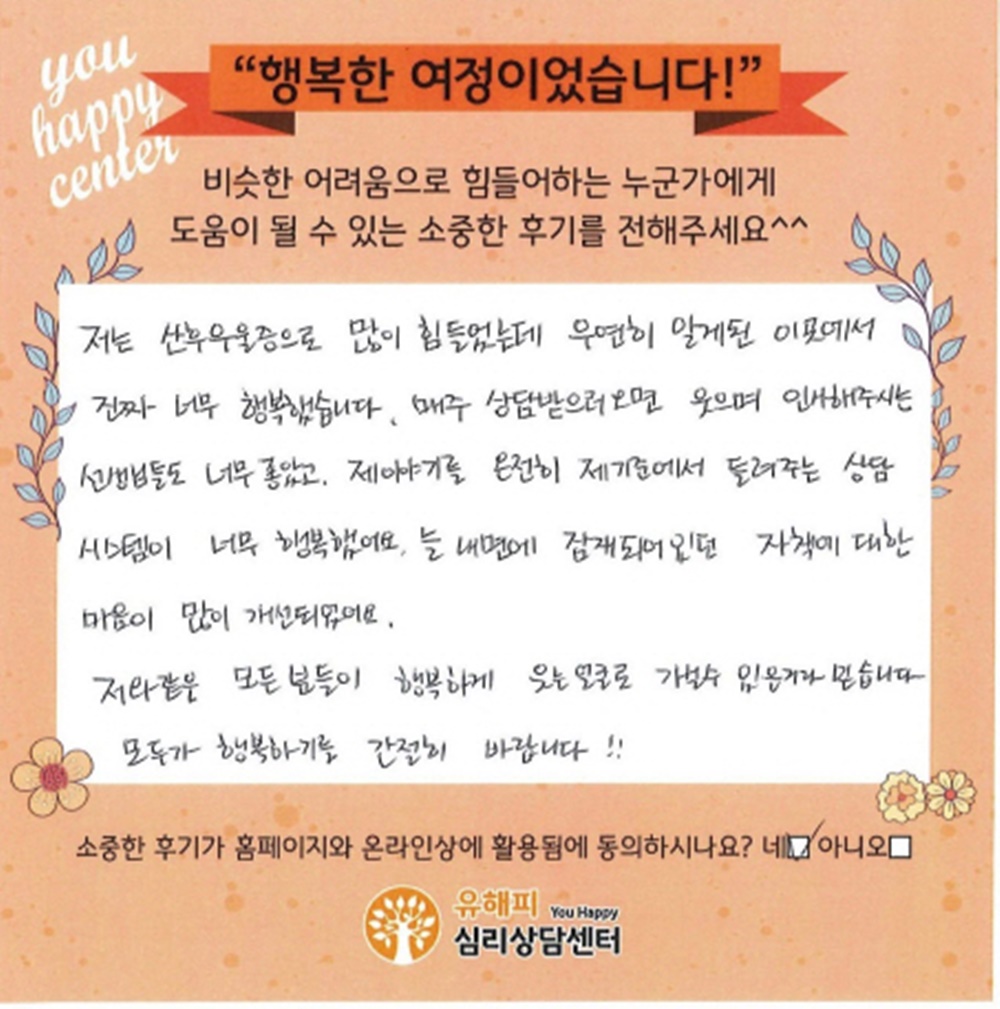 you
happy
center
“행복한 여정이었습니다!”
비슷한 어려움으로 힘들어하는 누군가에게
도움이 될 수 있는 소중한 후기를 전해주세요^^
저는 산후우울증으로 많이 힘들었는데 우연히 알게된 이곳에서
진짜 너무 행복했습니다. 매주 상담받으러오면 웃으며 인사해주시는
선생님들도 너무 좋았고, 제이야기를 온전히 제기준에서 들려주는 상담
시스템이 너무 행복했어요. 늘 내면에 잠재되어있던 자책에 대한
마음이 많이 개선되었어요.
저와같은 모든분들이 행복하게 웃는얼굴로 가실수 있을거라 믿습니다
모두가 행복하기를 간절히 바랍니다 !!
소중한 후기가 홈페이지와 온라인상에 활용됨에 동의하시나요? 네☑ 아니오□
유해피 You Happy
심리상담센터